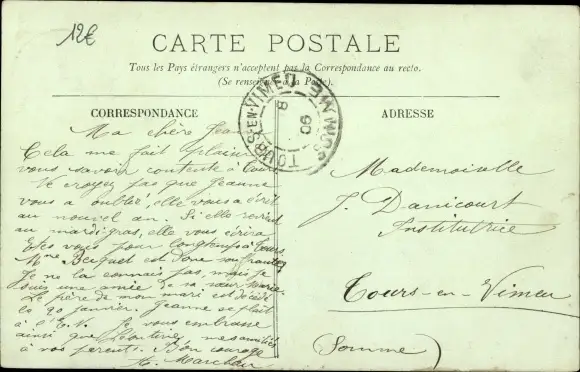 12€
CARTE POSTALE
Tous les Pays étrangers n'acceptent pas la Correspondance au recto.
(Se renseigner à la Poste).
CORRESPONDANCE
ADRESSE
TOURS-EN-VIMEU
SOMME
8
06
Ma chère Jeanne
Cela me fait plaisir
vous savoir contente à Tours
Ne croyez pas que Jeanne
vous a oublié, elle vous a écrit
au nouvel an. Si elle revient
au mardi-gras, elle vous écrira
Etes vous pour longtemps à Tours.
Mme Becquet est donc souffrante,
Je ne la connais pas, mais je
suis une amie de sa sœur Marie.
Le père de mon mari est décédé
le 20 janvier. Jeanne se plait
à l'E.N. Je vous embrasse
ainsi que mes amitiés
à vos parents. Bon courage
Mademoiselle
J. Danicourt
Institutrice
Tours-en-Vimeu
(Somme)